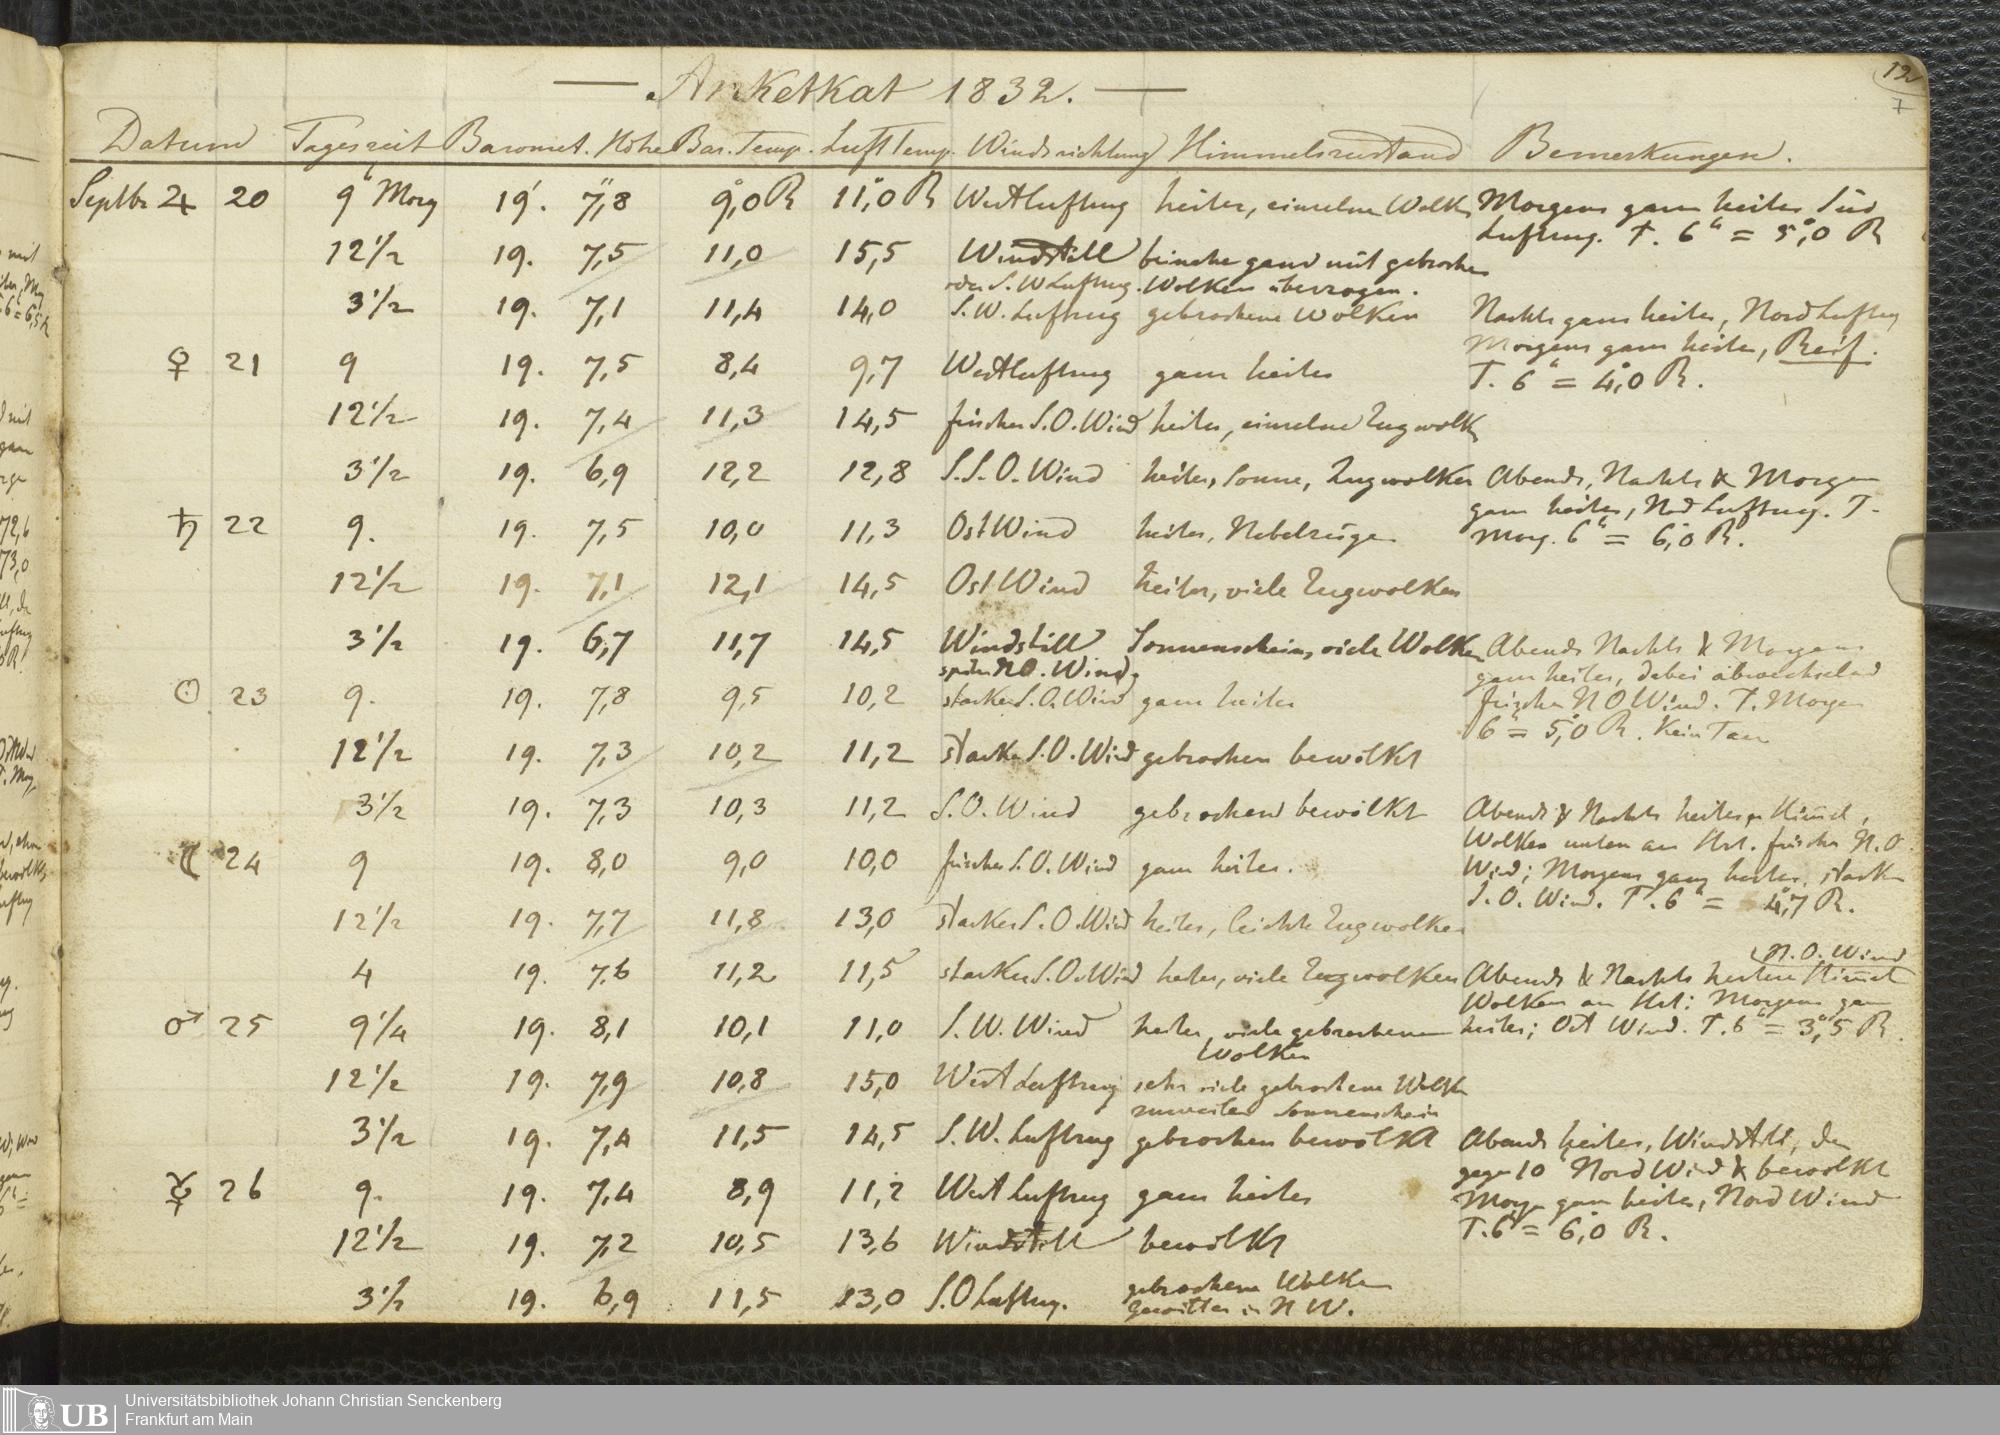 12
7
— Anketkat 1832. —
Datum Tageszeit Baromet. Höhe Bar. Temp. Luft Temp. Windsrichtung Himmelszustand Bemerkungen.
Septbr ♃ 20 9h Morg 19'. 7,8''' 9,0° R 11,0° R Westluftzug heiter, einzelne Wolk Morgens ganz heiter Süd
Luftzug. T. 6h = 5,0° R
12 1/2 19. 7,5 11,0 15,5 Windstill beinahe ganz mit gebrochen
oder S.W Luftzug. Wolken überzogen.
3 1/2 19. 7,1 11,4 14,0 S.W. Luftzug gebrochene Wolken Nachts ganz heiter, Nord Luftzug
Morgens ganz heiter, Reif.
♀ 21 9 19. 7,5 8,4 9,7 Westluftzug ganz heiter T. 6h = 4,0° R.
12 1/2 19. 7,4 11,3 14,5 frischer S.O. Wind heiter, einzelne Zugwolk
3 1/2 19. 6,9 12,2 12,8 S.S.O. Wind heiter, Sonne, Zugwolken Abends, Nachts & Morgen
ganz heiter, Nord Luftzug. T.
♄ 22 9. 19. 7,5 10,0 11,3 Ost Wind heiter, Nebelzüge Morg. 6h = 6,0° R.
12 1/2 19. 7,1 12,1 14,5 Ost Wind heiter, viele Zugwolken
3 1/2 19. 6,7 11,7 14,5 Windstill Sonnenschein, viele Wolken Abends Nachts & Morgens
später NO. Wind. ganz heiter, dabei abwechselnd
☉ 23 9. 19. 7,8 9,5 10,2 starker S.O. Wind ganz heiter frischer N O Wind. T. Morgen
6h = 5,0° R. Kein Tau
12 1/2 19. 7,3 10,2 11,2 starker S.O. Wind gebrochen bewölkt
3 1/2 19. 7,3 10,3 11,2 S.O. Wind gebrochen bewölkt Abends & Nachts heiterer Himel,
Wolken unten am Hrt. frischer N.O.
☾ 24 9 19. 8,0 9,0 10,0 frischer S.O. Wind ganz heiter. Wind; Morgens ganz heiter, starker
S.O. Wind. T. 6h = 4,7° R.
12 1/2 19. 7,7 11,8 13,0 starker S.O. Wind heiter, leichte Zugwolken
N.O. Wind
4 19. 7,6 11,2 11,5 starker S.O. Wind heiter, viele Zugwolken Abends & Nachts heiterer Himel
Wolken am Hrt: Morgens ganz
♂ 25 9 1/4 19. 8,1 10,1 11,0 S.W. Wind heiter, viele gebrochene heiter; Ost Wind. T. 6h = 3,5° R.
Wolken
12 1/2 19. 7,9 10,8 15,0 West Luftzug sehr viele gebrochene Wolken
zuweilen Sonnenschein
3 1/2 19. 7,4 11,5 14,5 S.W. Luftzug gebrochen bewölkt Abends heiter, Windstill, den
gegen 10h Nord Wind & bewölkt
☿ 26 9. 19. 7,4 8,9 11,2 West Luftzug ganz heiter Morgen ganz heiter, Nord Wind
T. 6h = 6,0 R.
12 1/2 19. 7,2 10,5 13,6 Windstill bewölkt
3 1/2 19. 6,9 11,5 13,0 S.O Luftzug. gebrochene Wolken
Gewitter in N W.
UB Universitätsbibliothek Johann Christian Senckenberg
Frankfurt am Main